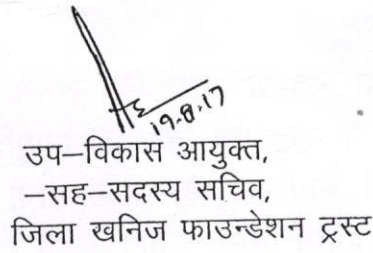 19.8.17
उप–विकास आयुक्त,
–सह–सदस्य सचिव,
जिला खनिज फाउन्डेशन ट्रस्ट